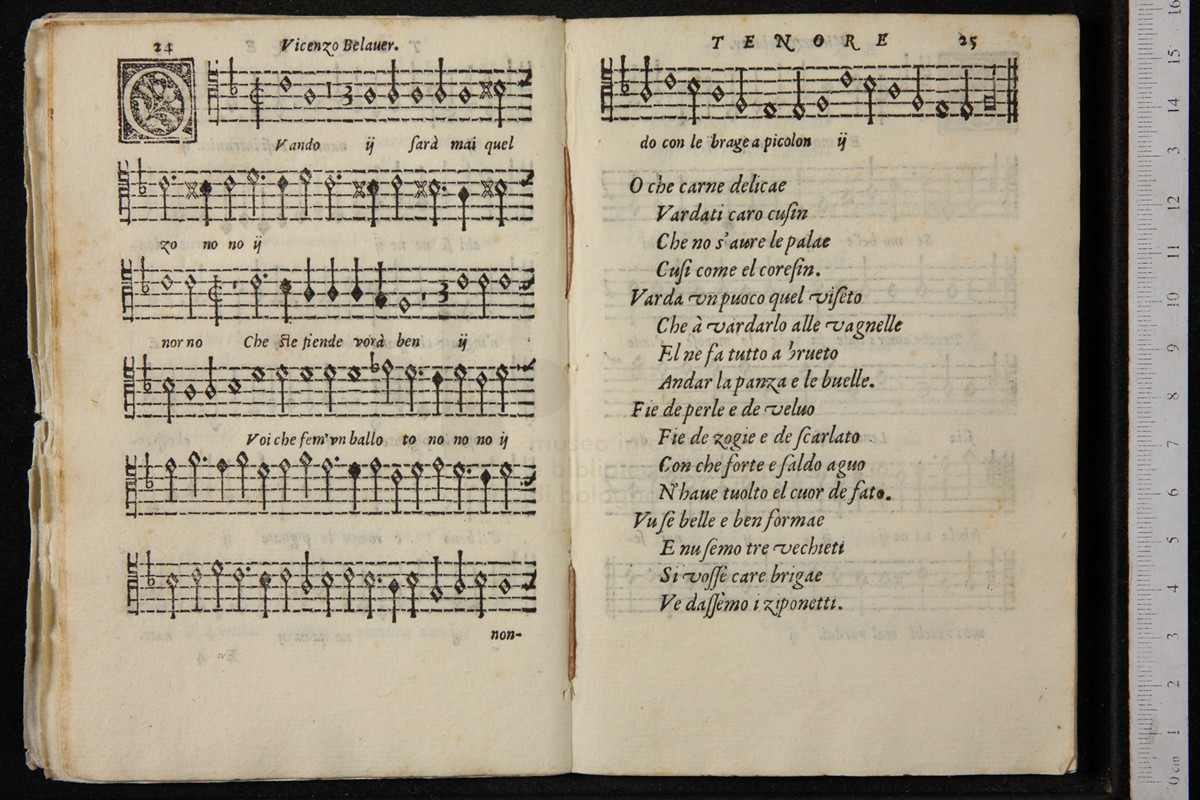 24
Vicenzo Belauer.
Q Vando ij sarà mai quel
zo no no ij
nor no Che sie siende vorà ben ij
Voi che sem' vn ballo to no no no ij
non-
TENORE 25
do con le brage a picolon ij
O che carne delicae
Vardati caro cusin
Che no s'aure le palae
Cusi come el coresin.
Varda vn puoco quel viseto
Che à vardarlo alle vagnelle
El ne fa tutto a brueto
Andar la panza e le buelle.
Fie de perle e de veluo
Fie de zogie e de scarlato
Con che forte e saldo aguo
N'haue tuolto el cuor de fato.
Vu se belle e ben formae
E nu semo tre vechieti
Si vossè care brigae
Ve dassèmo i ziponetti.
museo
bibliote
di bologna
0 cm 1 2 3 4 5 6 7 8 9 10 11 12 13 14 15 16